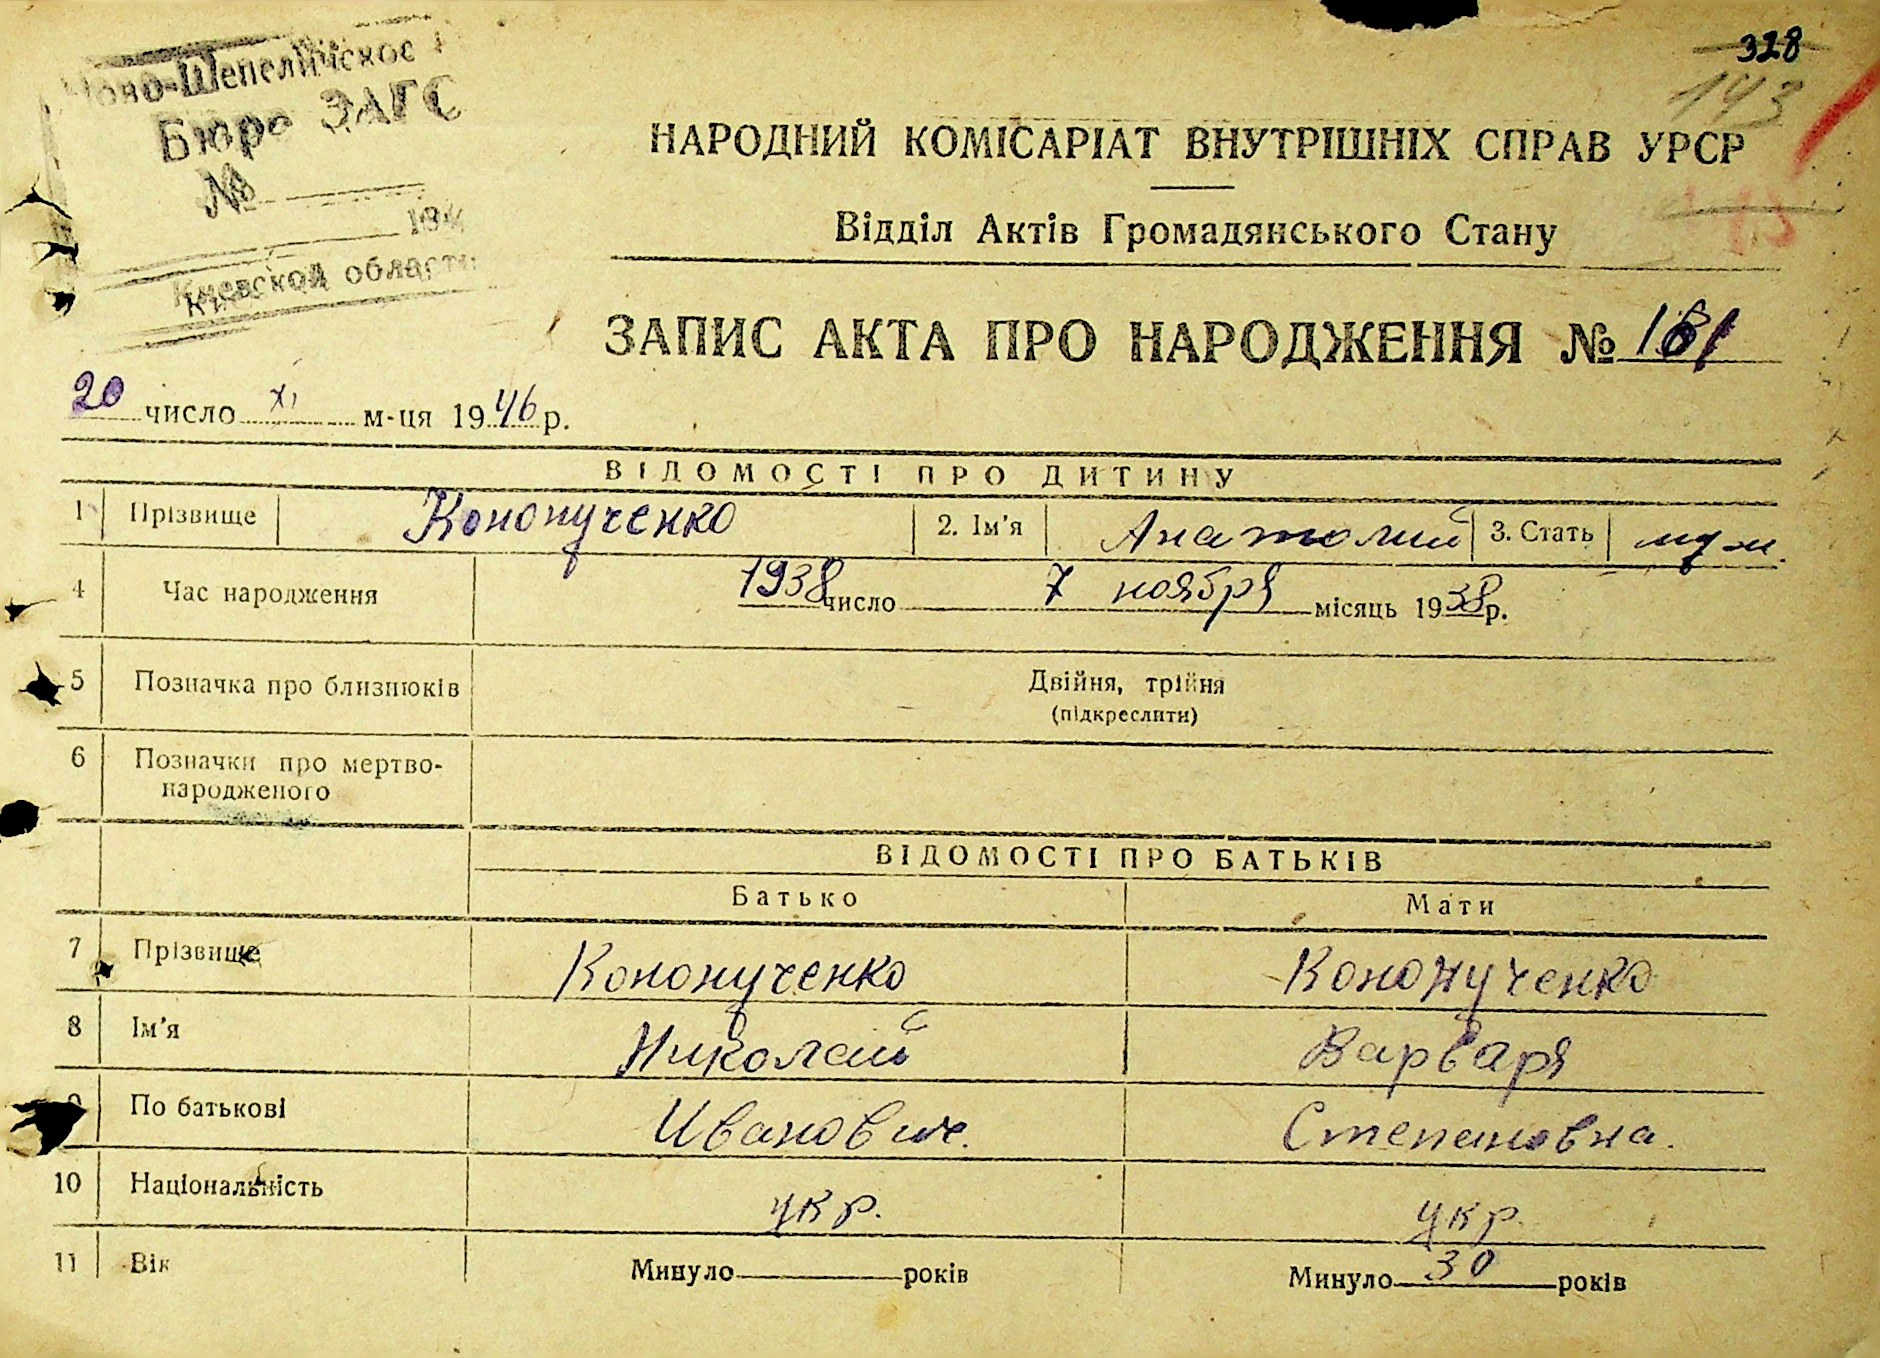 Ново-Шепеличское
Бюро ЗАГС
№
194
Киевской области
328
143
НАРОДНИЙ КОМІСАРІАТ ВНУТРІШНІХ СПРАВ УРСР
Відділ Актів Громадянського Стану
ЗАПИС АКТА ПРО НАРОДЖЕННЯ №
20 число XI м-ця 1946 р.
ВІДОМОСТІ ПРО ДИТИНУ
1 Прізвище Конопученко 2. Ім'я Анатолий 3. Стать муж.
4 Час народження 1938 число 7 ноября місяць 1938 р.
5 Позначка про близнюків Двійня, трійня
(підкреслити)
6 Позначки про мертво-
народженого
ВІДОМОСТІ ПРО БАТЬКІВ
Батько Мати
7 Прізвище Конопученко Конопученко
8 Ім'я Николай Варваря
9 По батькові Иванович. Степановна.
10 Національність укр. укр.
11 Вік Минуло років Минуло 30 років